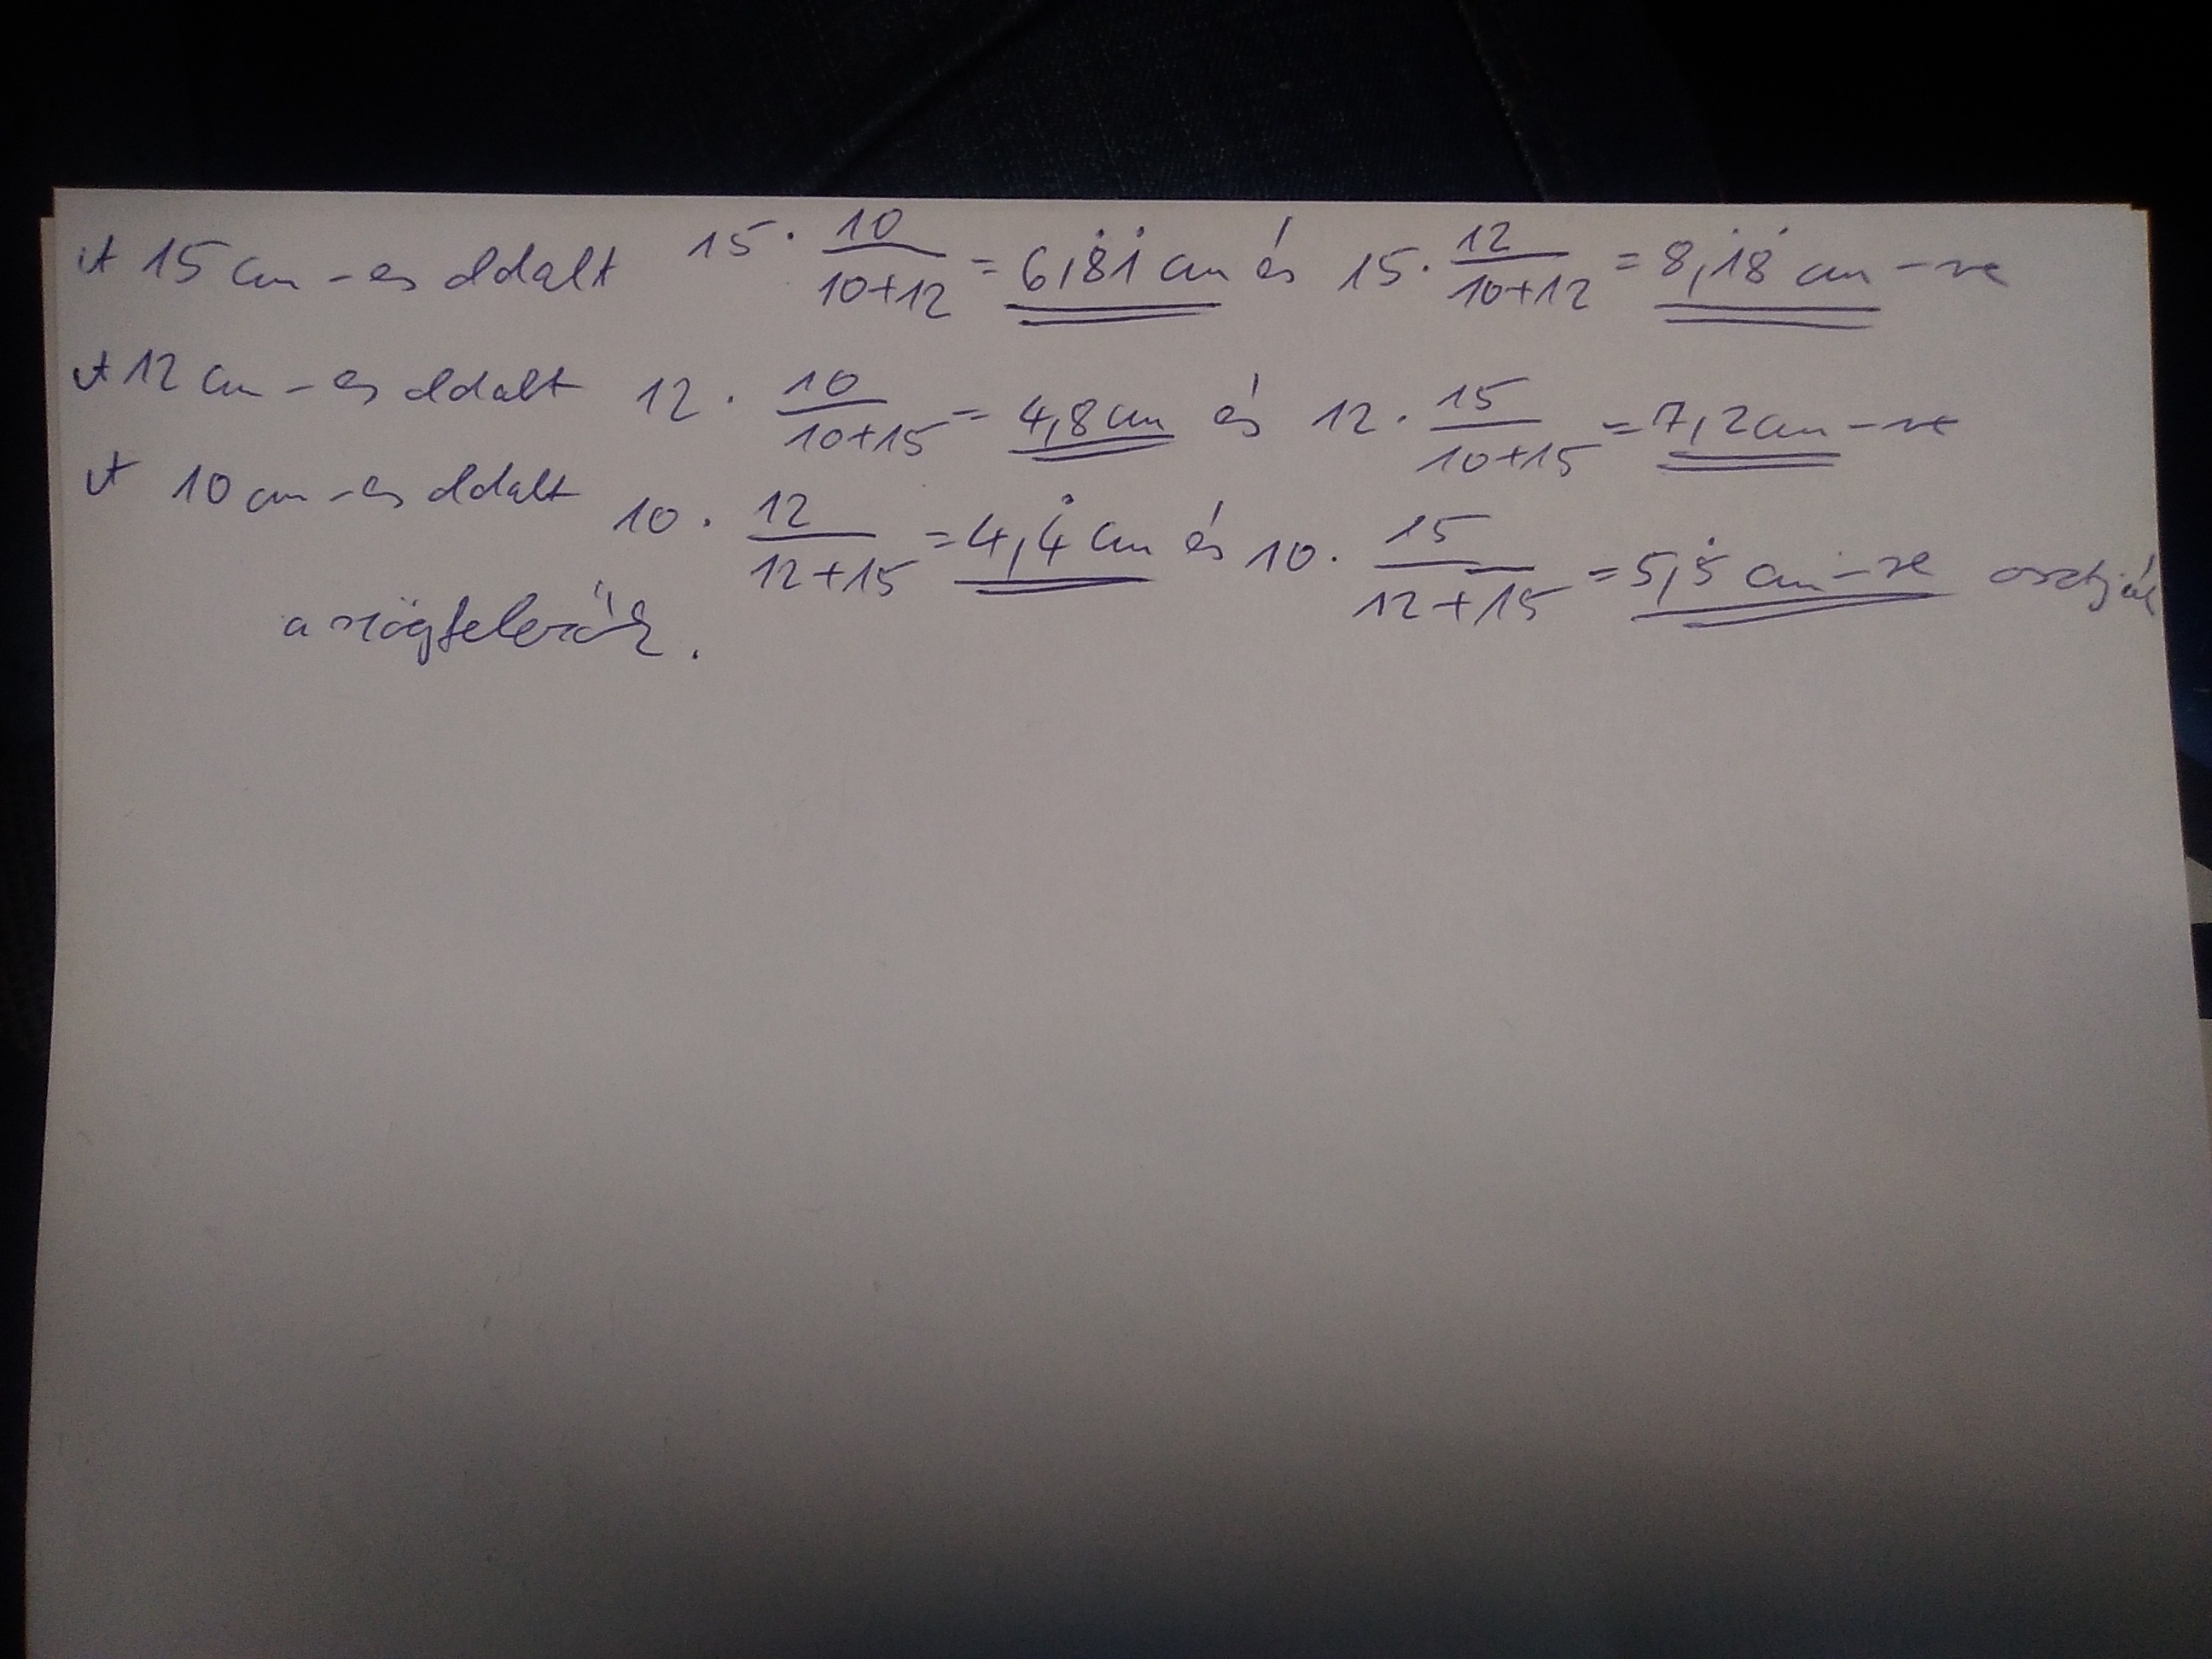 A 15 cm-es oldalt 15 · 10/(10+12) = 6,8̇1̇ cm és 15 · 12/(10+12) = 8,1̇8̇ cm-re
A 12 cm-es oldalt 12 · 10/(10+15) = 4,8 cm és 12 · 15/(10+15) = 7,2 cm-re
A 10 cm-es oldalt 10 · 12/(12+15) = 4,4̇ cm és 10 · 15/(12+15) = 5,5̇ cm-re osztják
a szögfelezők.